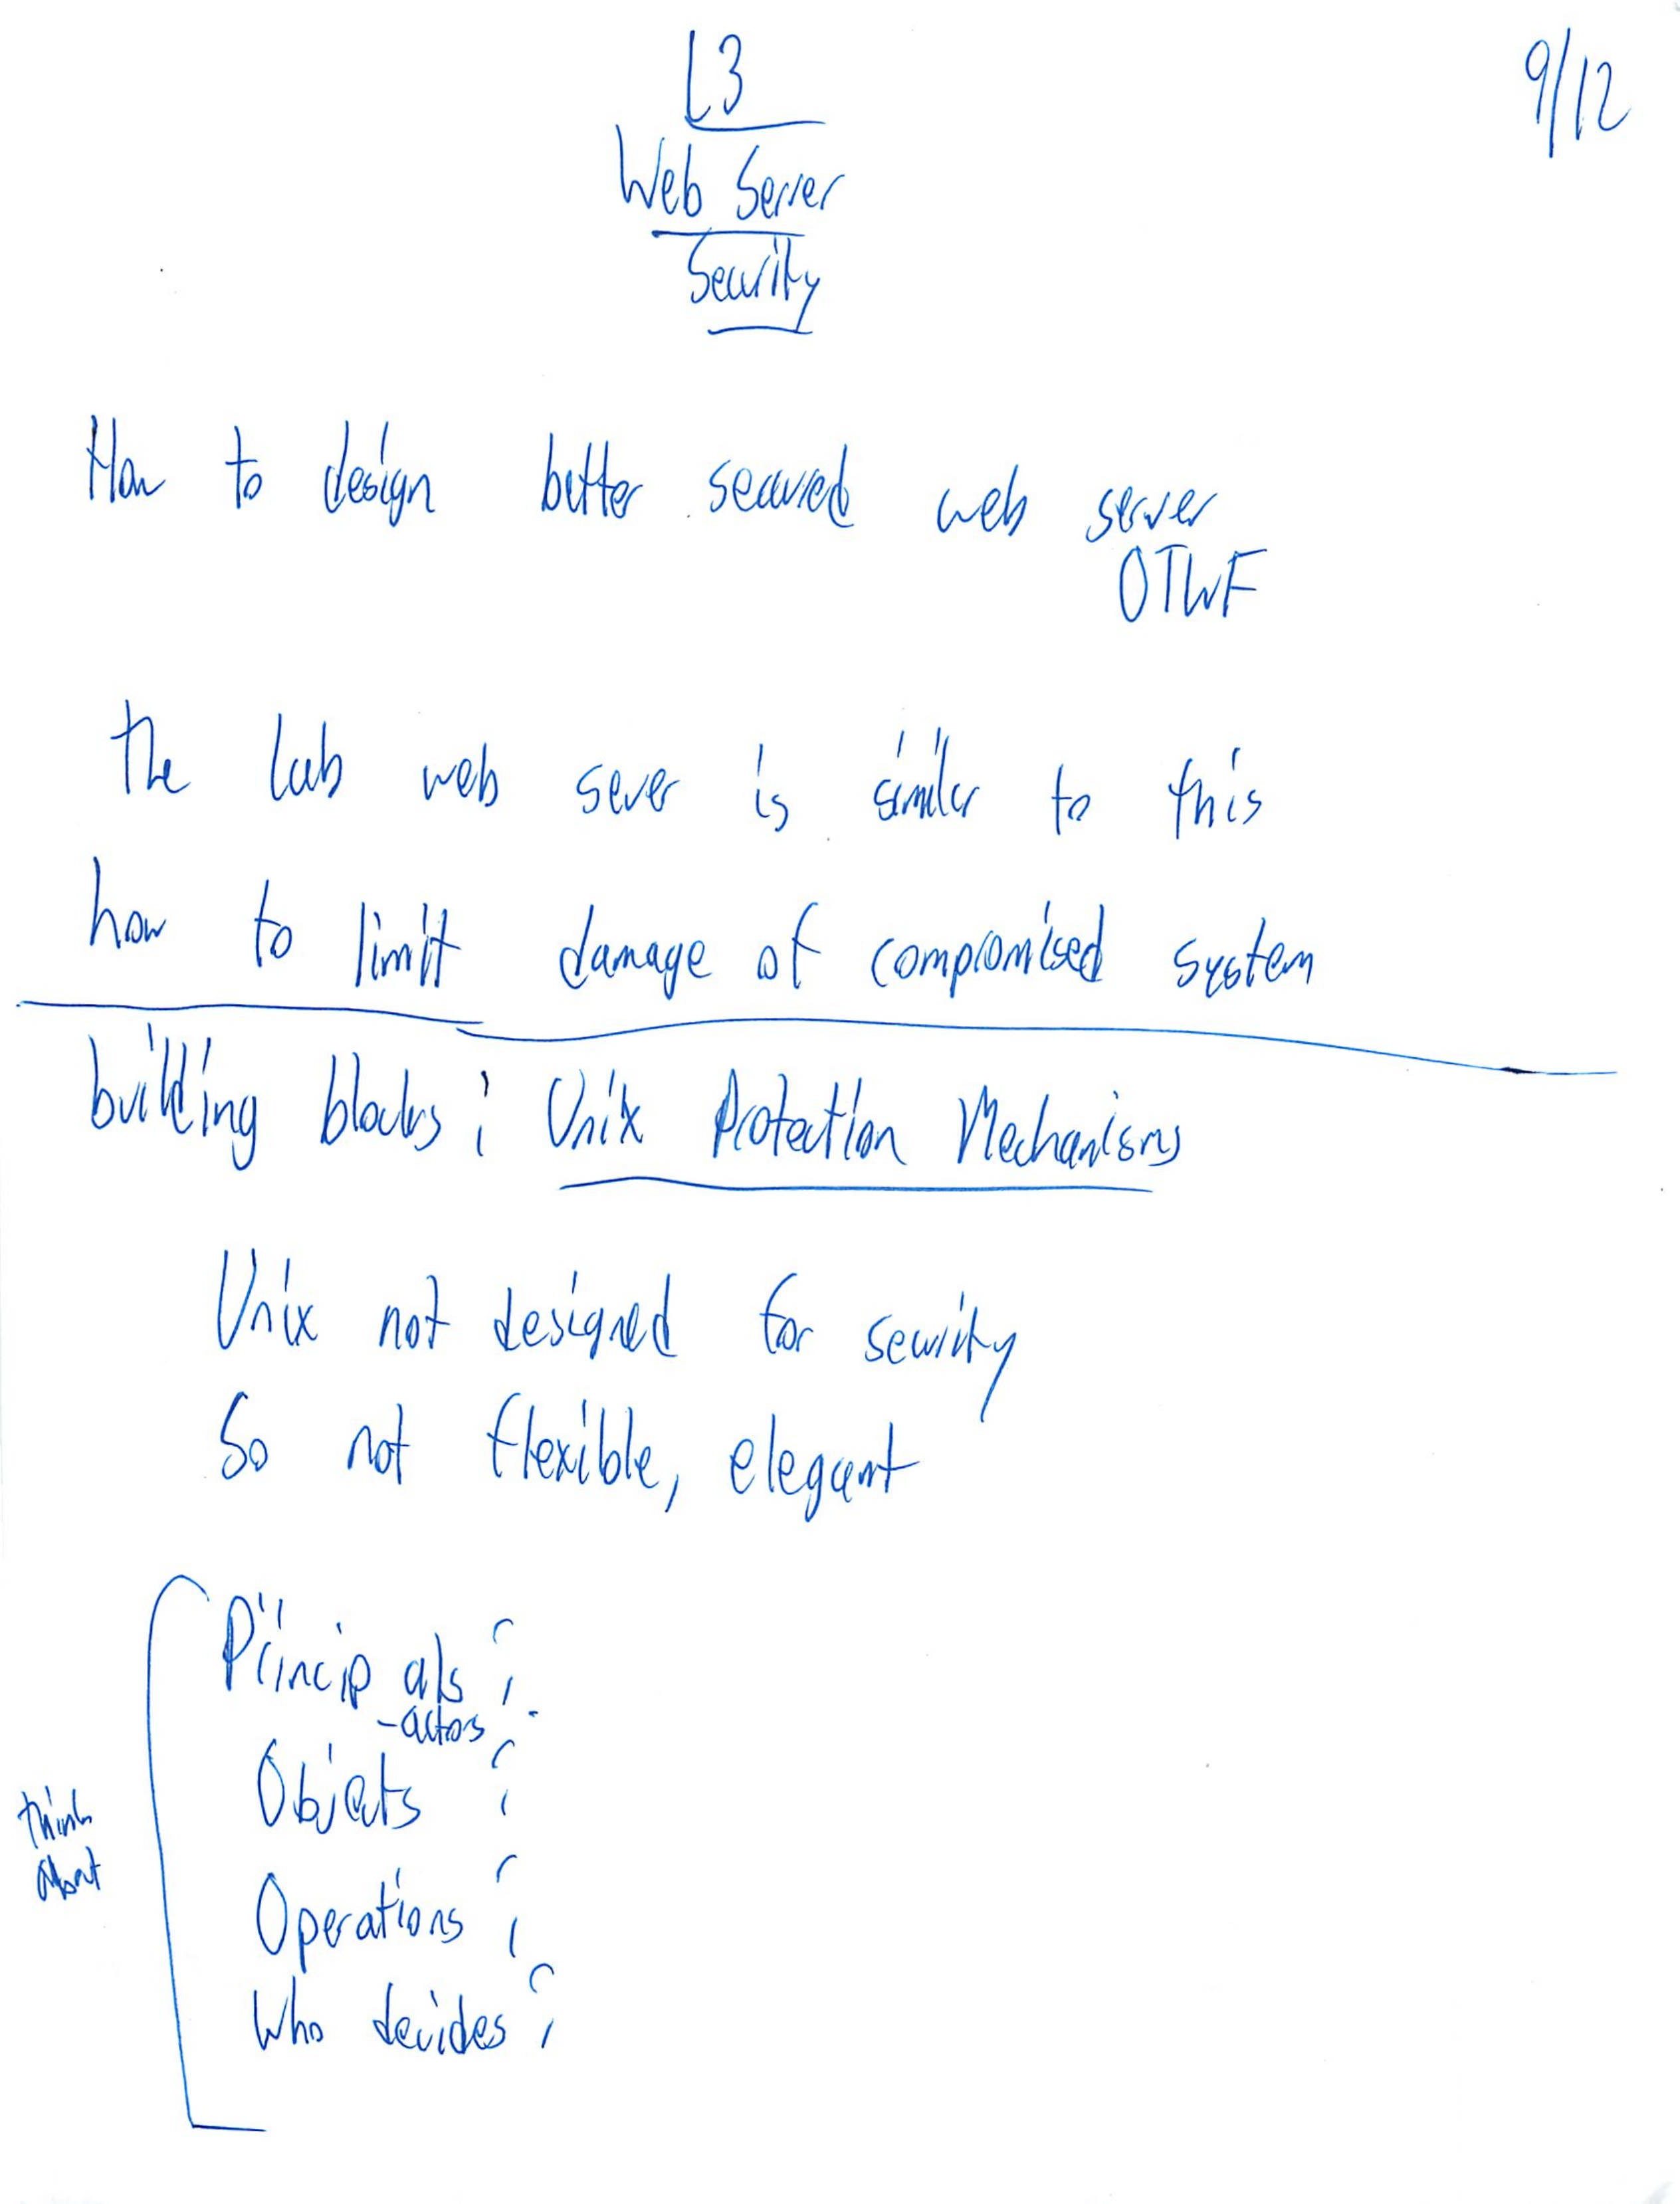 L3
9/12
Web Server
Security
How to design better secured web server
OTWF
The lab web sever is similar to this
how to limit damage of compromised system
building blocks: Unix Protection Mechanisms
Unix not designed for security
So not flexible, elegant
Principals:
-actors
Objects:
Operations:
Who decides:
think
about